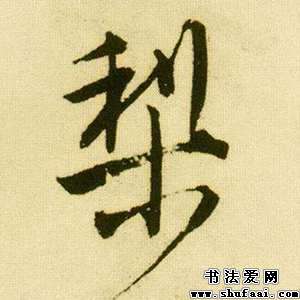 梨
书法爱网
www.shufaai.com